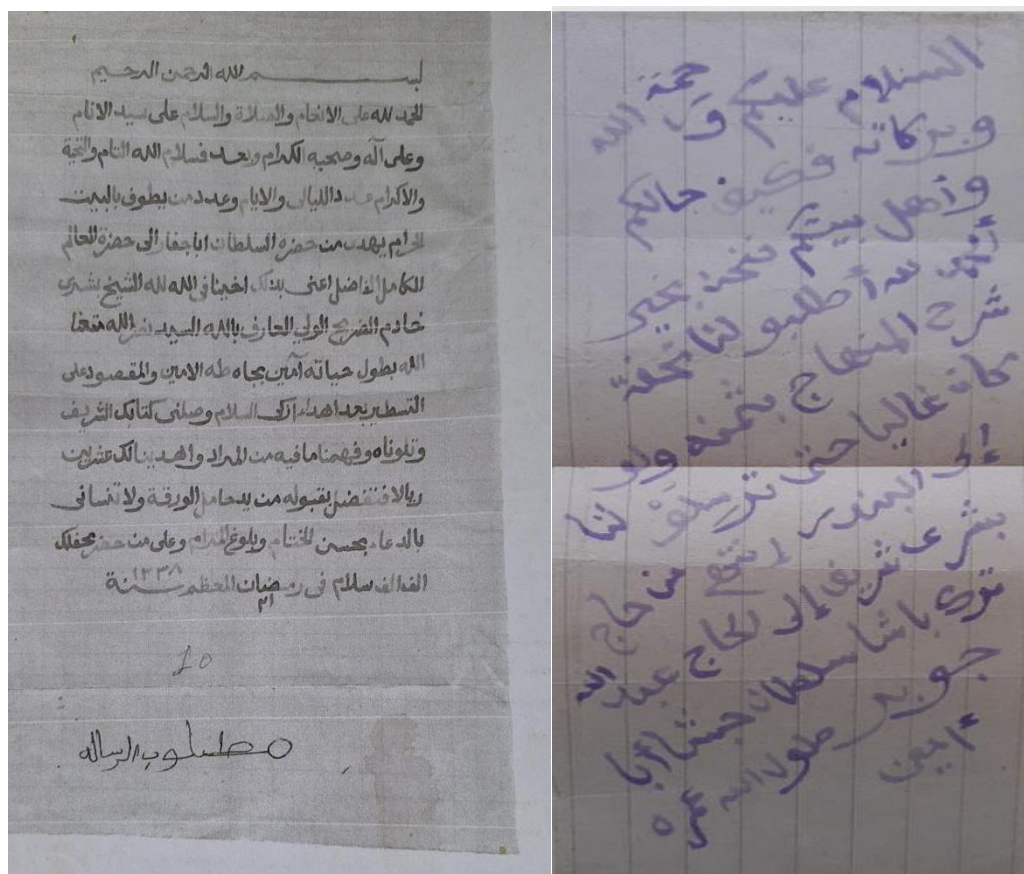 بسم الله الرحمن الرحيم
الحمد لله على الانعام والصلاة والسلام على سيد الانام
وعلى آله وصحبه الكرام وبعد فسلام الله التام والتحية
والاكرام عدد الليالى والايام وعدد من يطوف بالبيت
الحرام يهدى من حضرة السلطان اباجفار الى حضرة العالم
الكامل الفاضل اعنى بذلك اخينا فى الله لله الشيخ بشرى
خادم الضريح الولي العارف بالله السيد نصرالله متعنا
الله بطول حياته آمين بجاه طه الامين والمقصود على
التسطير بعد اهداء ازكى السلام وصلنى كتابك الشريف
وتلوناه وفهمنا ما فيه من المراد واهدينا لك عشرين
ريالا فتفضل بقبوله من يد حامل الورقة ولا تنسانى
بالدعاء بحسن الختام وبلوغ المرام وعلى من حضر بمحفلك
الف الف سلام فى رمضان المعظم سنة ١٣٣٨
٢١
10
مطلوب الرساله
السلام عليكم ورحمة الله
وبركاته فكيف حالكم
وأهل بيتكم نحن بخير
أطلبو لنا تحفة
شرح المنهاج بثمنه ولو
كان غاليا حتى لنا
إلى البندر حاج
بشرى شريف إلى الحاج عبد الله
باشا سلطان جمّا أبا
جوبر طول الله
آمين